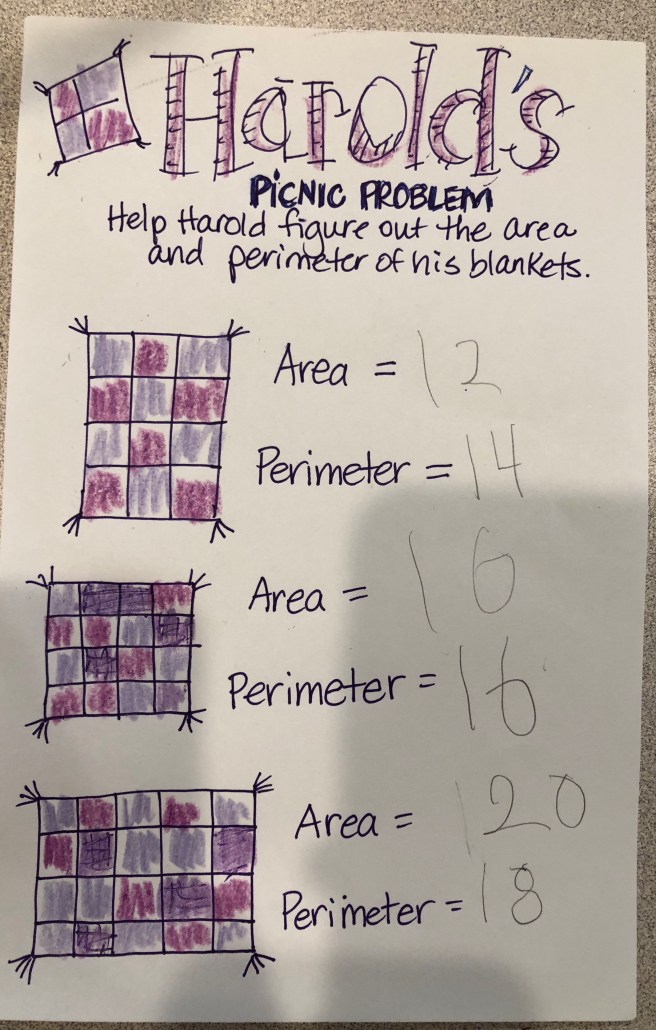 Harold's
PiCNIC PROBLEM
Help Harold figure out the area
and perimeter of his blankets.
Area = 12
Perimeter = 14
Area = 16
Perimeter = 16
Area = 20
Perimeter = 18